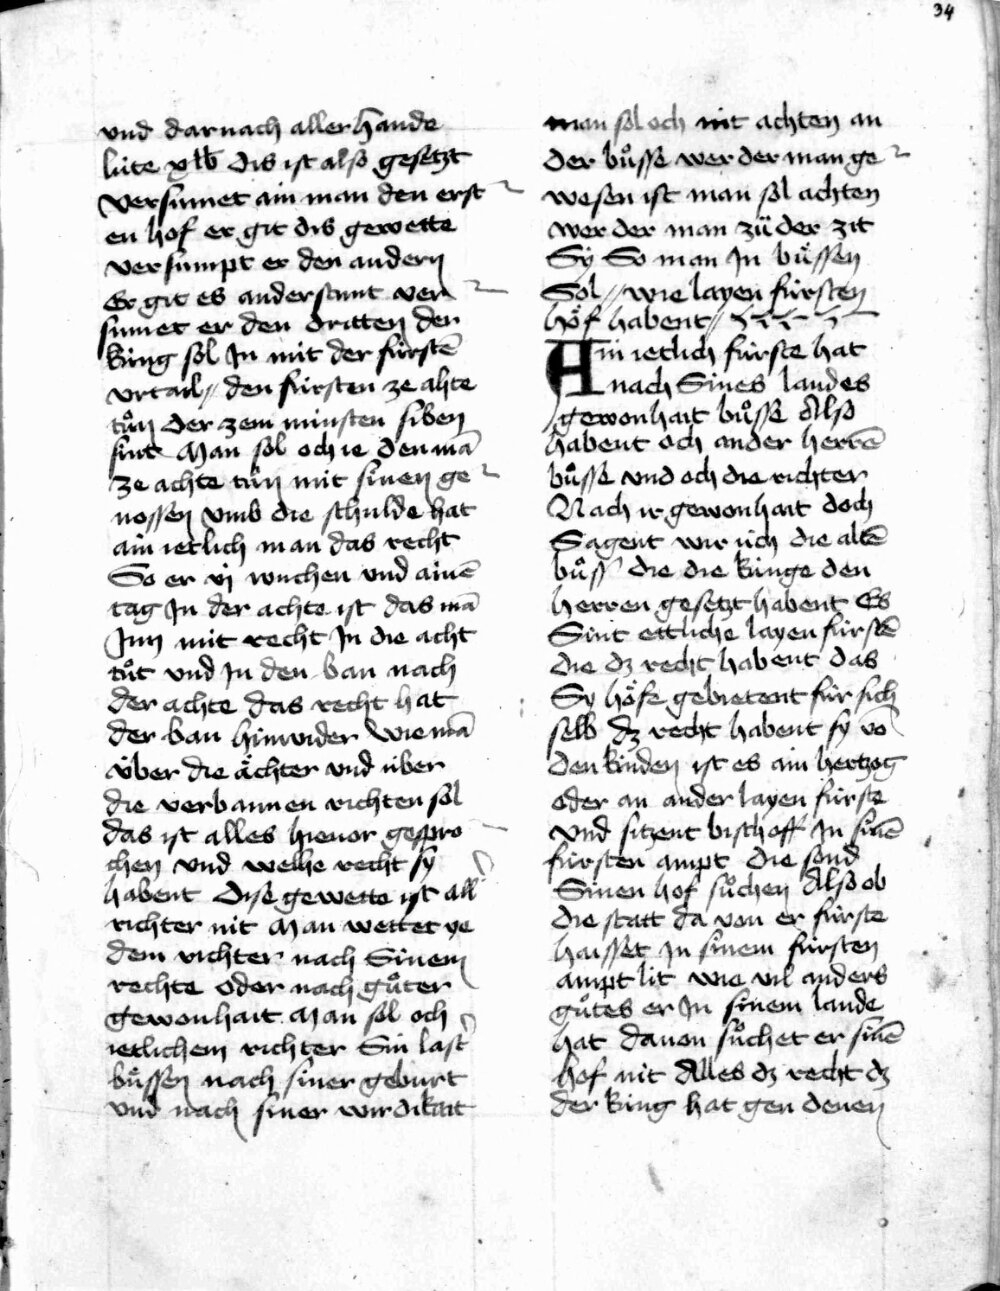 34
und darnach aller hande
lüte x lb dis ist also gesetzt
versumet ain man den erst
en hof er git dis gewette
versumpt er den andern
Er git es anderstunt ver
sumet er den dritten der
king sol In mit der fürstē
urtail // den fürsten ze ahte
tůn der zem minsten siben
sint Man sol och ie den mā
ze achte tůn mit sinen ge
nossen vmb die schulde hat
ain ietlich man das recht
So er vj wuchen und ainē
tag In der achte ist das mā
Inn mit recht In die acht
tůt und In den ban nach
der achte das recht hat
der ban hinwider Wie mā
über die ächter und über
die verbannen richten sol
das ist alles hieuor gespro
chen und welhe recht sy
habent dise gewette ist all
richter nit Man wettet ye
dem richter nach Sinem
rechte oder nach gůter
gewonhait Man sol och
ietlichem richter Sin last
bůssen nach siner geburt
und nach siner wirdikait
man sol och nit achten an
der bůsse wer der man ge
wesen ist man sol achten
wer der man zü der zit
Sÿ So man In büssen
Sol // wie layen fürsten
höf habent //
Ain ietlich fürste hat
nach Sines landes
gewonhait bůsse Also
habent och ander herrē
bůsse und och die richter
Nach ir gewonhait doch
Sagent wir üch die altē
bůss die die kinge den
herren gesetzt habent Es
Sint ettliche layen fürstē
die dz recht habent das
Sy höfe gebietent für sich
selb dz recht habent sy vō
den kinden ist es ain hertzog
oder an ander layen fürste
und sitzent bischoff In sinē
fürsten ampt die sond
Sinen hof sůchen Also ob
die statt da von er fürste
haisset In sinem fürsten
ampt lit wie vil anders
gůtes er In sinem lande
hat dauon sůchet er sinē
hof nit Alles dz recht dz
der king hat gen denen